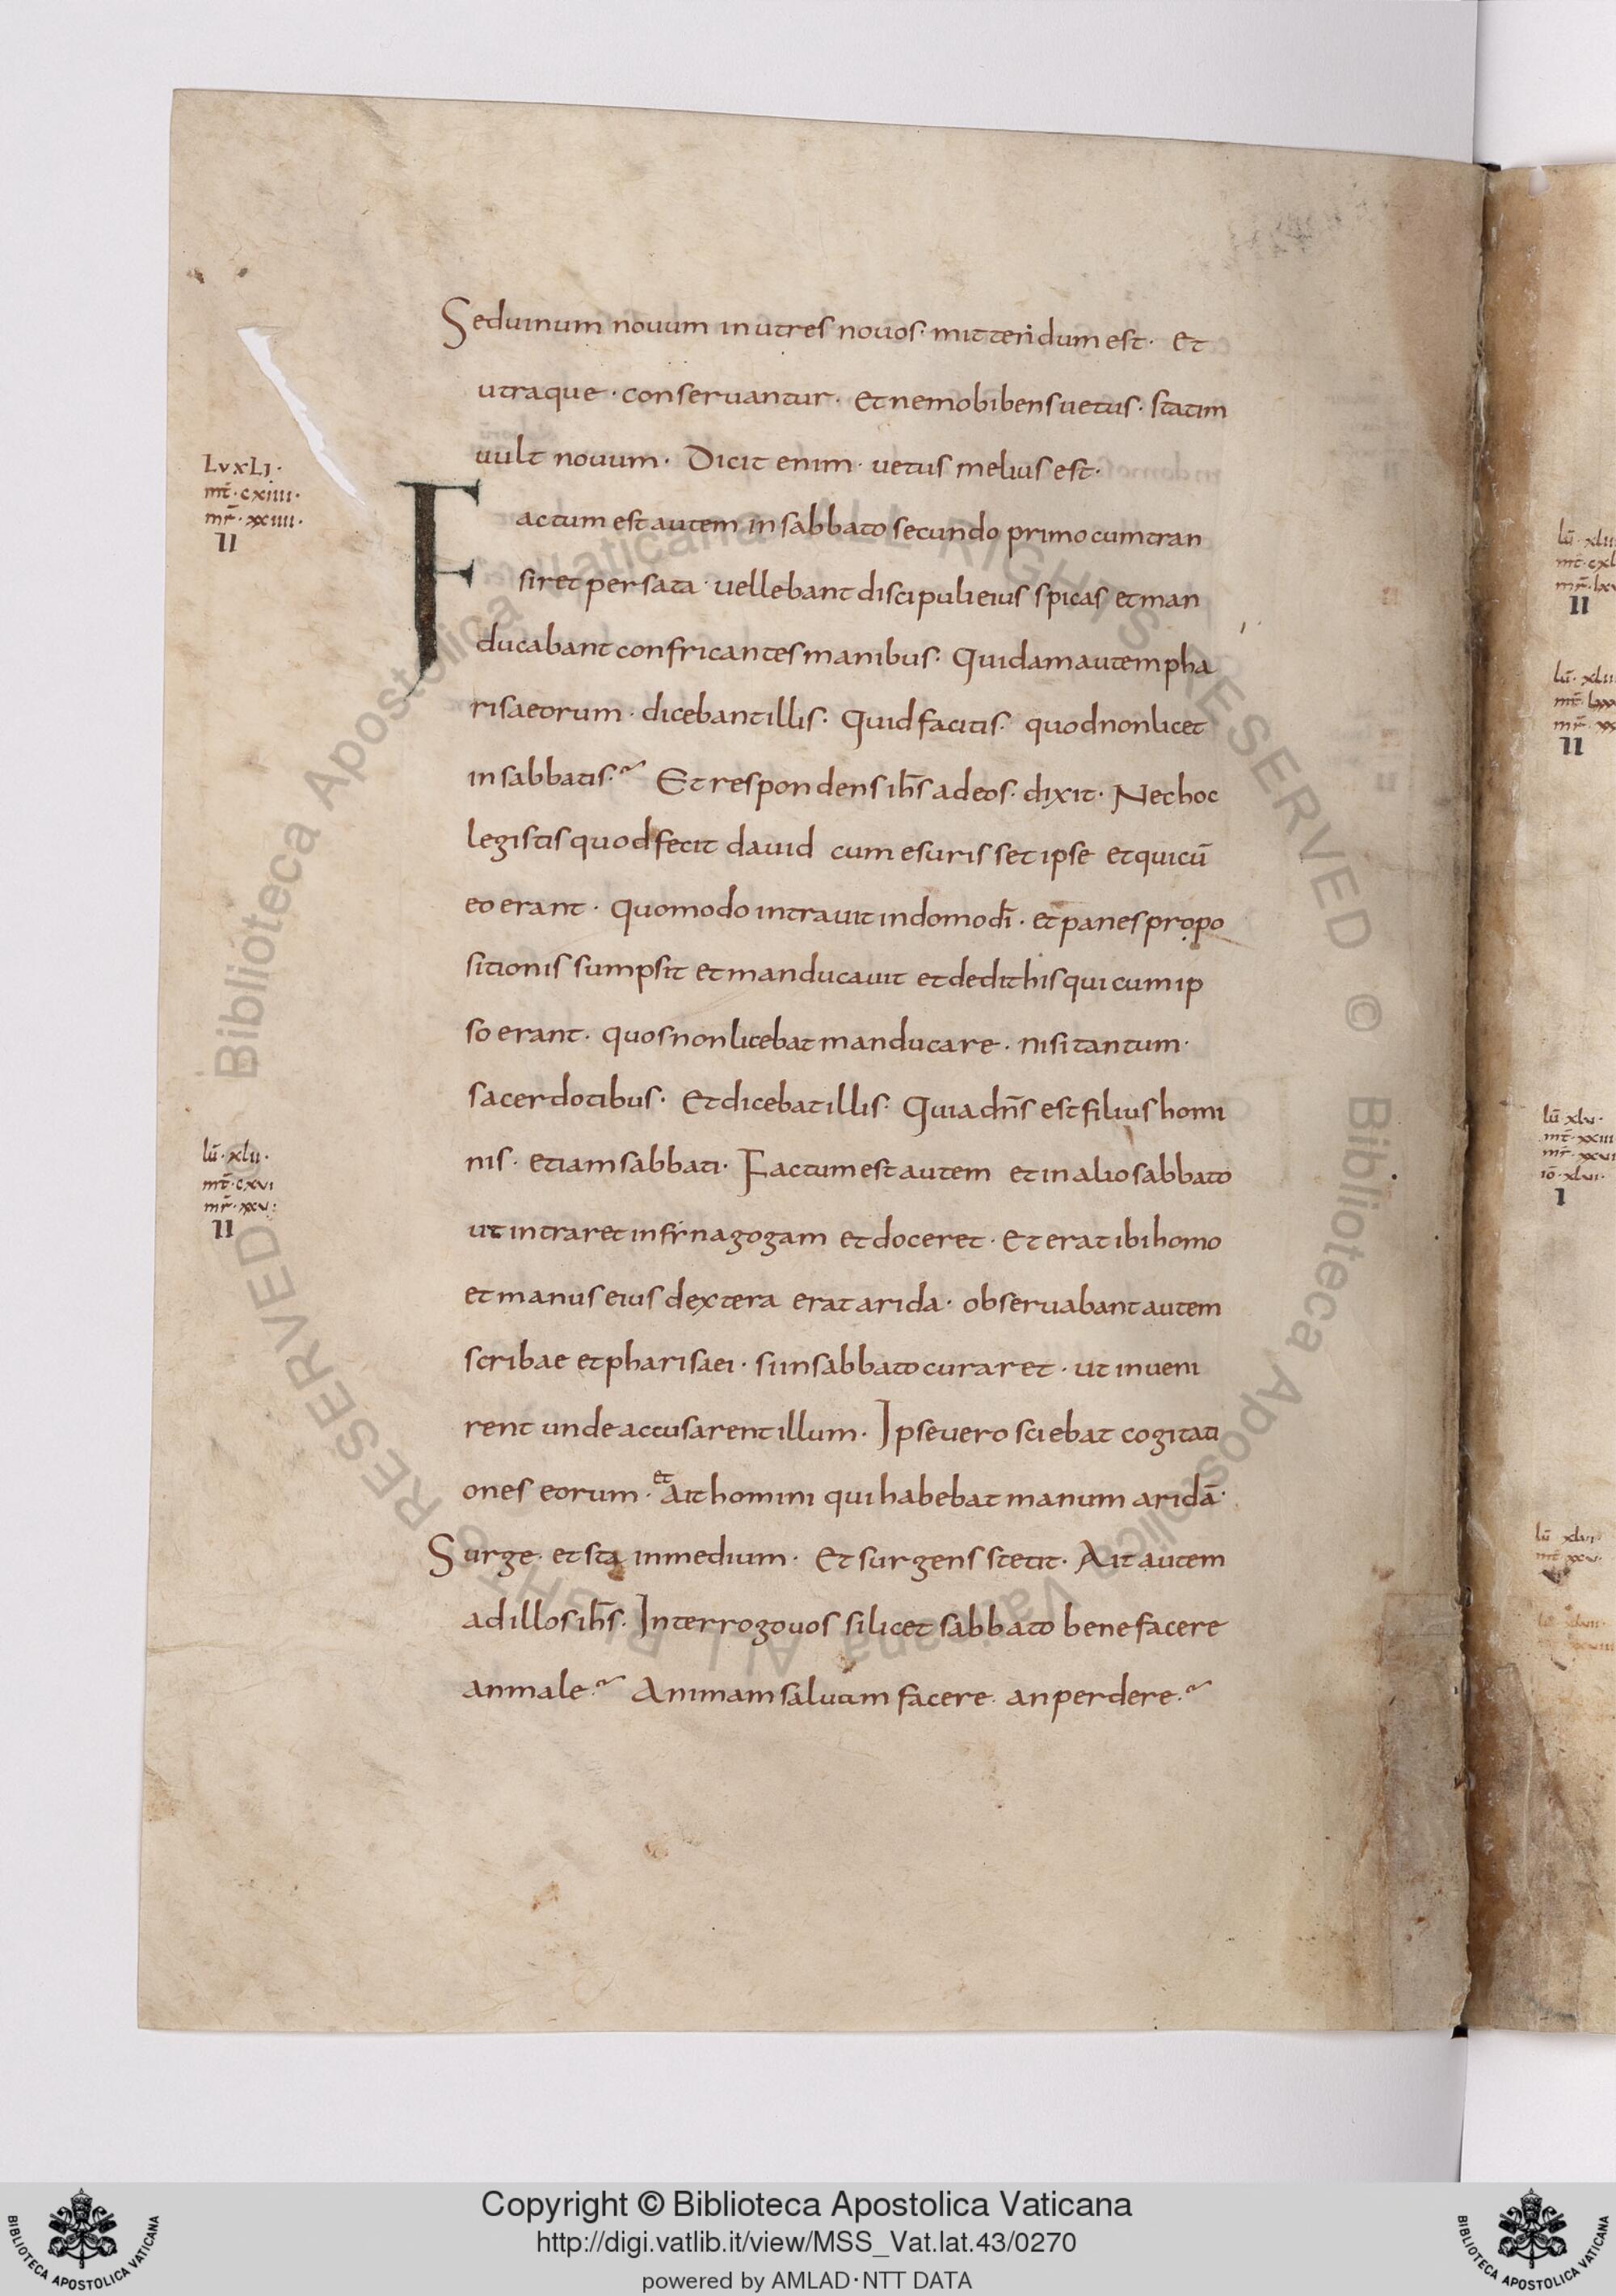 Sed uinum nouum in utres nouos· mittendum est· Et
utraque· conseruantur· Et nemo bibens uetus· statim
uult nouum· Dicit enim· uetus melius est·
LvxLI·
mt̄· cxiiii·
mr̄· xxiiii·
II
Factum est autem in sabbato secundo primo cum tran
siret per sata· uellebant discipuli eius spicas et man
ducabant confricantes manibus· Quidam autem pha
risaeorum· dicebant illis· Quid facitis· quod non licet
in sabbatis? Et respondens ih̄s ad eos· dixit· Nec hoc
legistis quod fecit dauid cum esurisset ipse et qui cū
eo erant· quomodo intrauit in domo dī· et panes propo
sitionis sumpsit et manducauit et dedit his qui cum ip
so erant· quos non licebat manducare· nisi tantum·
sacerdotibus· Et dicebat illis· Quia dn̄s est filius homi
lū· xlii·
mt̄· cxvi
mr̄· xxv·
II
nis· etiam sabbati· Factum est autem et in alio sabbato
ut intraret in synagogam et doceret· Et erat ibi homo
et manus eius dextera erat arida· obseruabant autem
scribae et pharisaei· si in sabbato curaret· ut inueni
rent unde accusarent illum· Ipse uero sciebat cogitati
ones eorum· et ait homini qui habebat manum aridā·
Surge· et sta in medium· Et surgens stetit· Ait autem
ad illos ih̄s· Interrogo uos si licet sabbato bene facere
an male? Animam saluam facere· an perdere?
lū· xlii
II
II
lū· xlv·
I
Copyright © Biblioteca Apostolica Vaticana
http://digi.vatlib.it/view/MSS_Vat.lat.43/0270
powered by AMLAD·NTT DATA
BIBLIOTECA APOSTOLICA VATICANA
BIBLIOTECA APOSTOLICA VATICANA
Biblioteca Apostolica Vaticana ALL RIGHTS RESERVED © Biblioteca Apostolica Vaticana ALL RIGHTS RESERVED